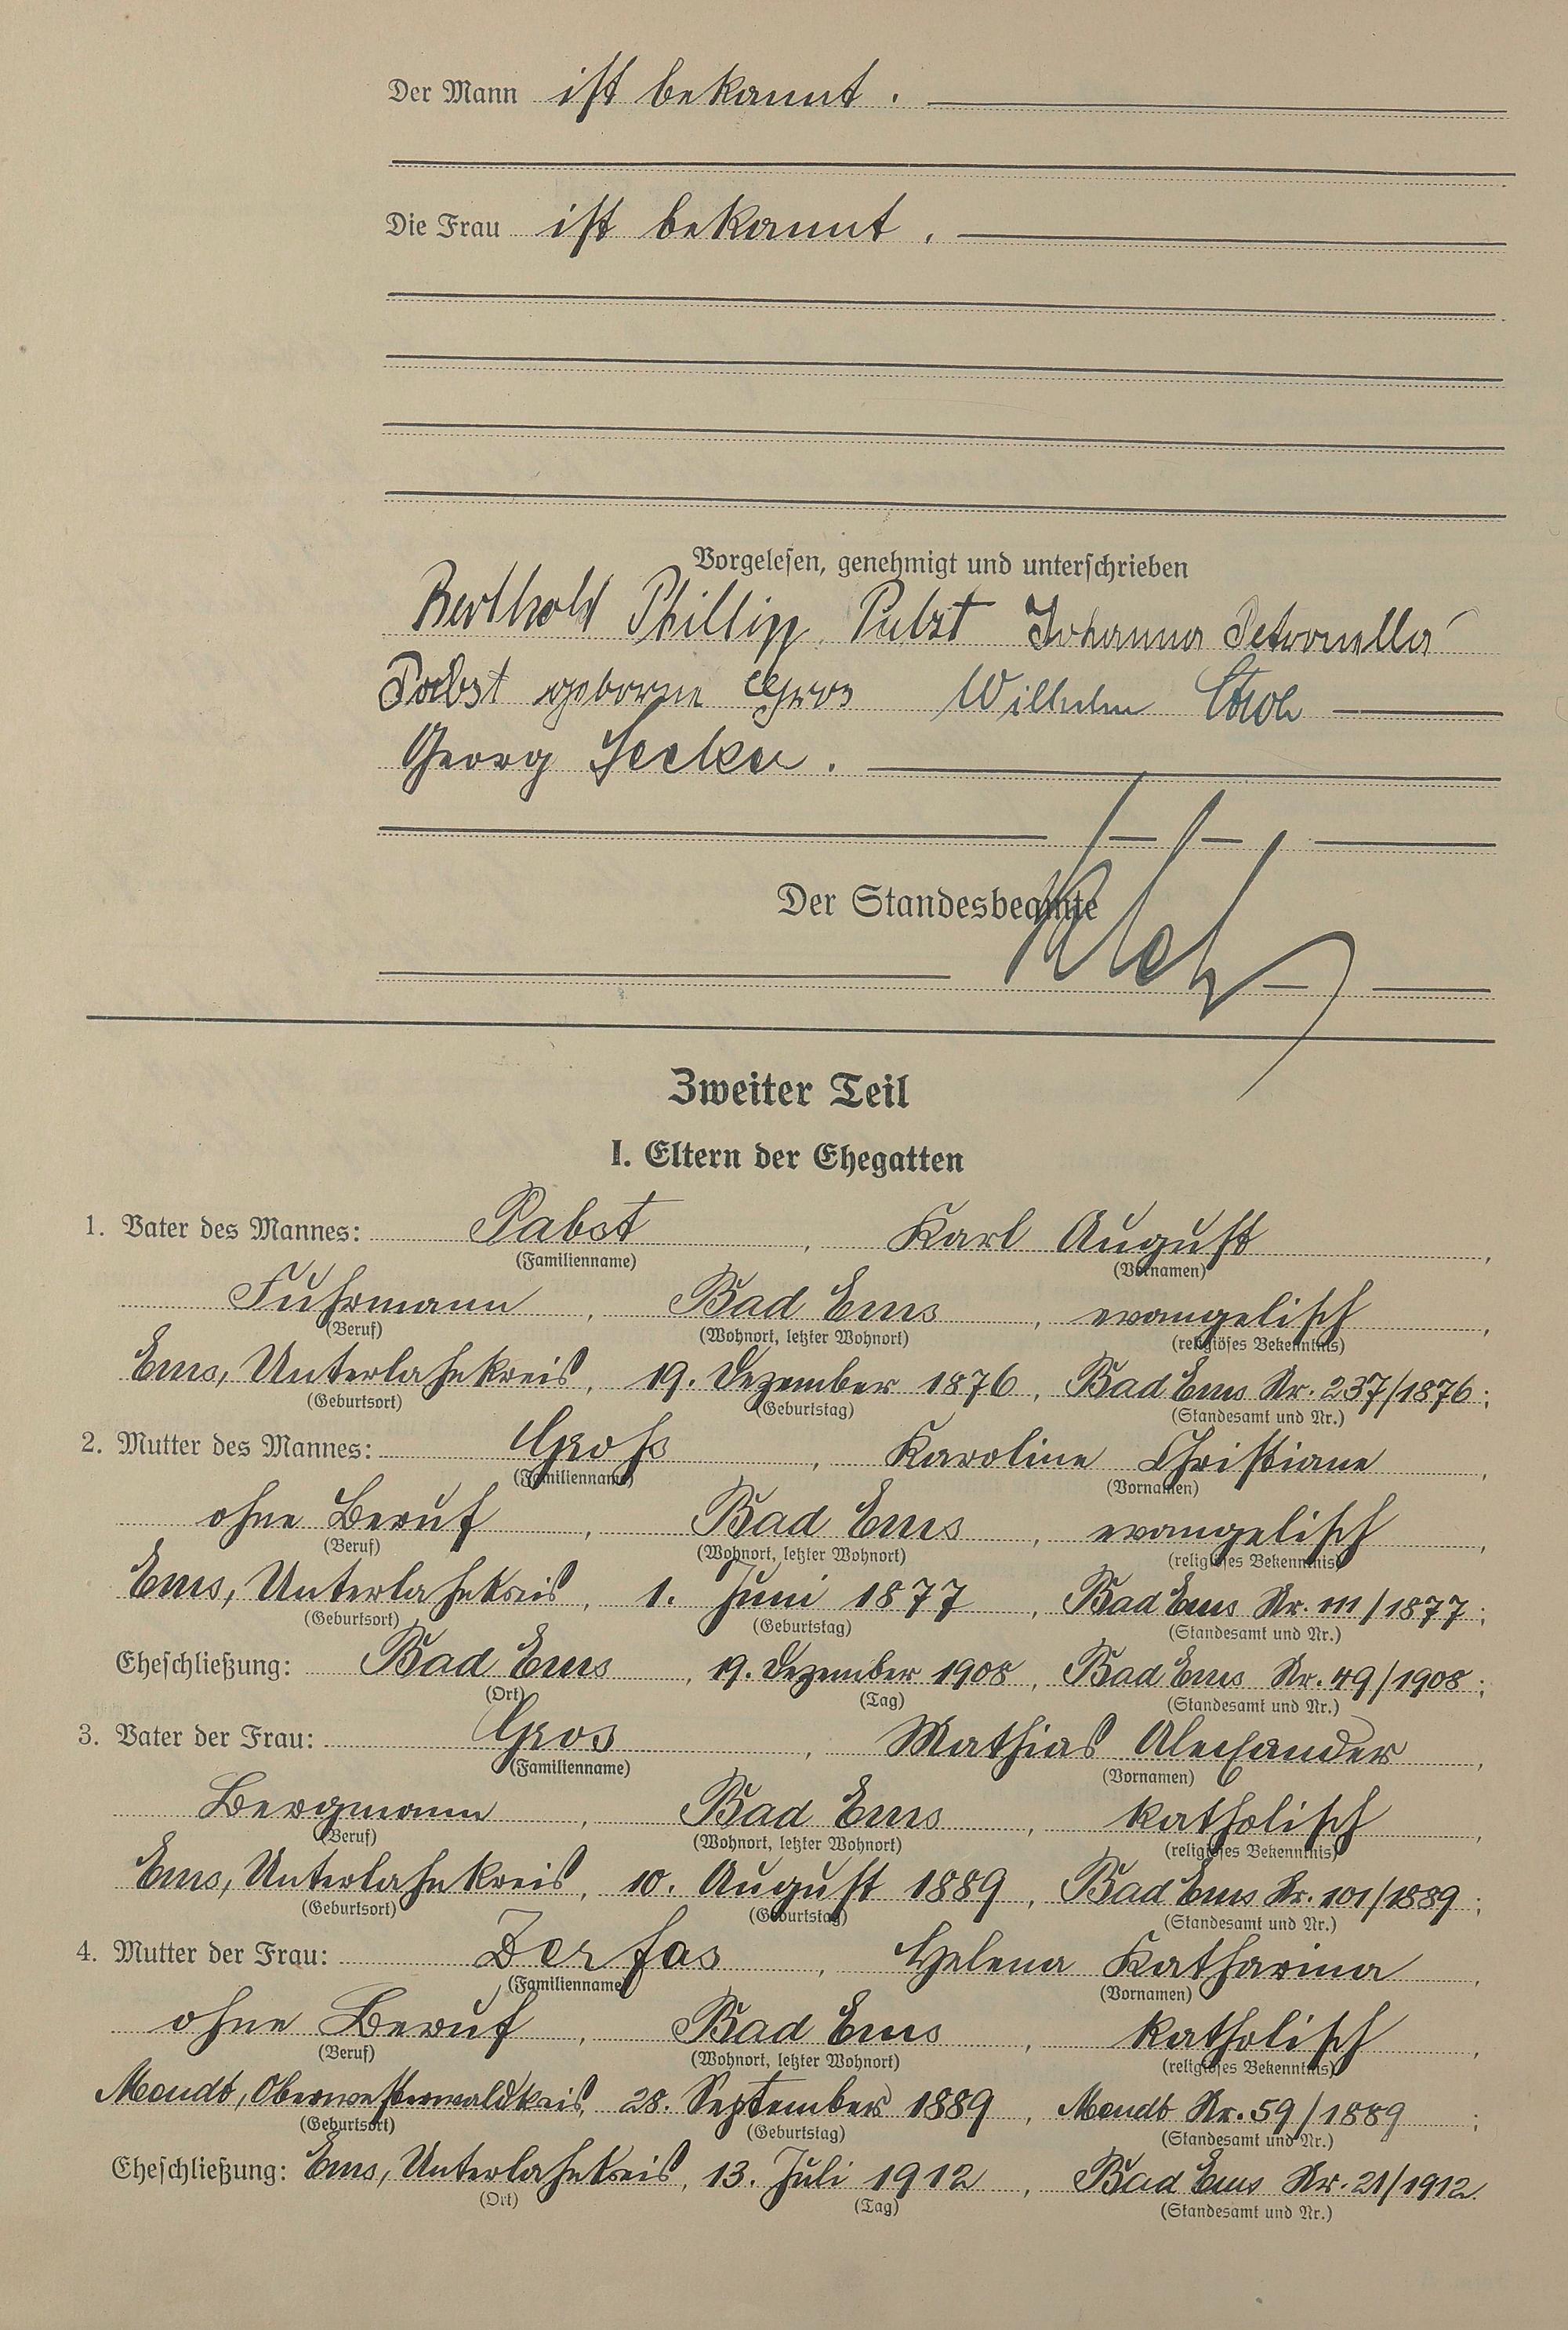 Der Mann ist bekannt.
Die Frau ist bekannt.
Vorgelesen, genehmigt und unterschrieben
Berthold Phillipp Pabst Johanna Petronella
Pabst geborne Gros Wilhelm
Georg
Der Standesbeamte
Zweiter Teil
I. Eltern der Ehegatten
1. Vater des Mannes: Pabst, Karl August,
(Familienname) (Vornamen)
Fuhrmann, Bad Ems, evangelisch,
(Beruf) (Wohnort, letzter Wohnort) (religiöses Bekenntnis)
Ems, Unterlahnkreis, 19. Dezember 1876, Bad Ems Nr. 237/1876;
(Geburtsort) (Geburtstag) (Standesamt und Nr.)
2. Mutter des Mannes: Groß, Karoline Christiane,
(Familienname) (Vornamen)
ohne Beruf, Bad Ems, evangelisch,
(Beruf) (Wohnort, letzter Wohnort) (religiöses Bekenntnis)
Ems, Unterlahnkreis, 1. Juni 1877, Bad Ems Nr. 111/1877;
(Geburtsort) (Geburtstag) (Standesamt und Nr.)
Eheschließung: Bad Ems, 19. Dezember 1908, Bad Ems Nr. 49/1908;
(Ort) (Tag) (Standesamt und Nr.)
3. Vater der Frau: Gros, Mathias Alexander,
(Familienname) (Vornamen)
Bergmann, Bad Ems, katholisch,
(Beruf) (Wohnort, letzter Wohnort) (religiöses Bekenntnis)
Ems, Unterlahnkreis, 10. August 1889, Bad Ems Nr. 101/1889;
(Geburtsort) (Geburtstag) (Standesamt und Nr.)
4. Mutter der Frau: Zerfas, Helena Katharina,
(Familienname) (Vornamen)
ohne Beruf, Bad Ems, katholisch,
(Beruf) (Wohnort, letzter Wohnort) (religiöses Bekenntnis)
Meudt, Oberwesterwaldkreis, 28. September 1889, Meudt Nr. 59/1889;
(Geburtsort) (Geburtstag) (Standesamt und Nr.)
Eheschließung: Ems, Unterlahnkreis, 13. Juli 1912, Bad Ems Nr. 21/1912.
(Ort) (Tag) (Standesamt und Nr.)